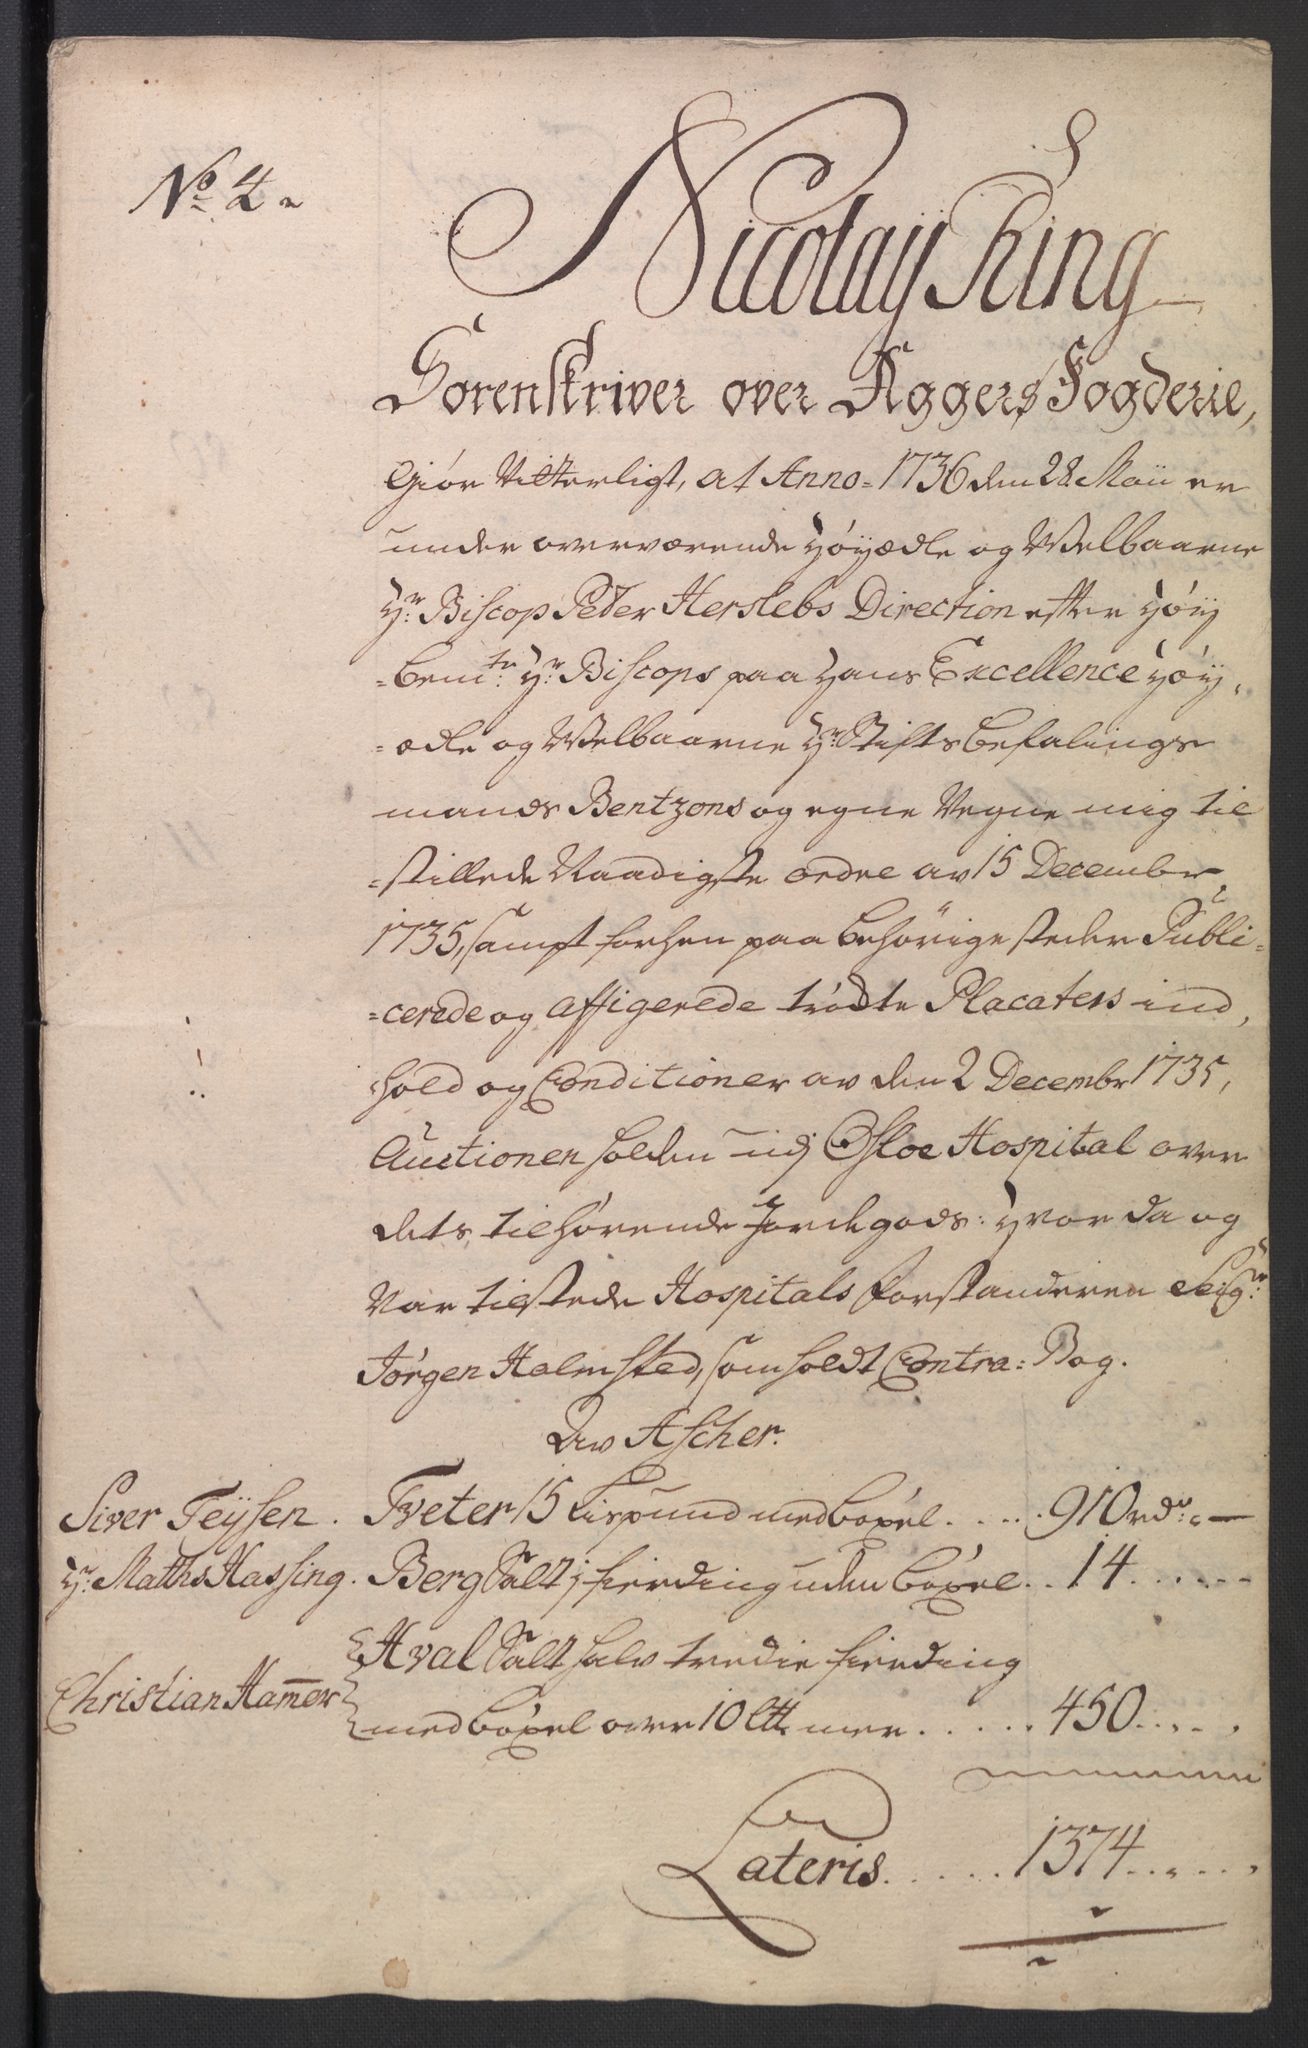 No 4.
Nicolaÿ Ring
Sorenskriver over Aggers Fogderie,
Giør Vitterligt, at Anno 1736 den 28 Maii er
under overværende Høÿædle og Welbaarne
Hr. Biscop Peder Herslebs Direction efter Høÿ
-bemte. Hr. Biscops paa Hans Excellence Høÿ,
-ædle og Welbaarne Hr. Stifts befalings
mands Bentzons og egne Vegne mig til
-stillede Naadigste ordre av 15 Decembr,
1735, sampt forhen paa behörige steder Publi-
-cerede og affigerede trÿdte Placaters ind,
hold og Conditioner av den 2 Decembr 1735,
Auctionen holden udj Osloe Hospital over
dets tilhørende Jordegods: Hvor da og
Var tilstede Hospitals Forstanderen Seigr.
Jørgen Halmsted, som holdt Contra-Bog.
Av Ascher.
Siver Teÿsen. Tveter 15 Lispund med bøxel..... 910 rdr. -
Hr. Maths Hassing. Berg Salt j fierding uden bøxel.. 14......
Hval Salt halv tredie fierding
Christian Hammer med bøxel over 10 Ltt. mer...... 450.....
Lateris...... 1374......